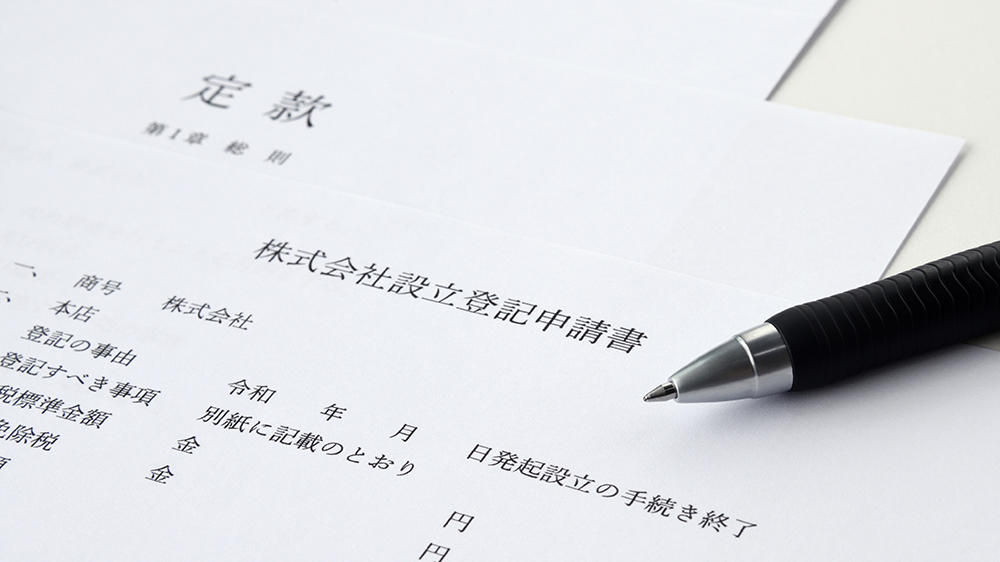 定 款
第1章 総 則
株式会社設立登記申請書
一、 商号 株式会社
一、 本店
登記の事由 令和 年 月 日発起設立の手続き終了
登記すべき事項 別紙に記載のとおり
税標準金額 金 円
免除税 金 円